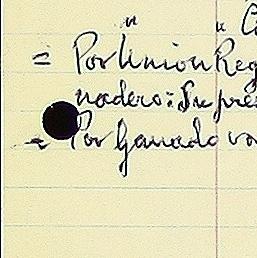 " " C
= Por Union Reg
nadero: Supres
= Por Ganado va